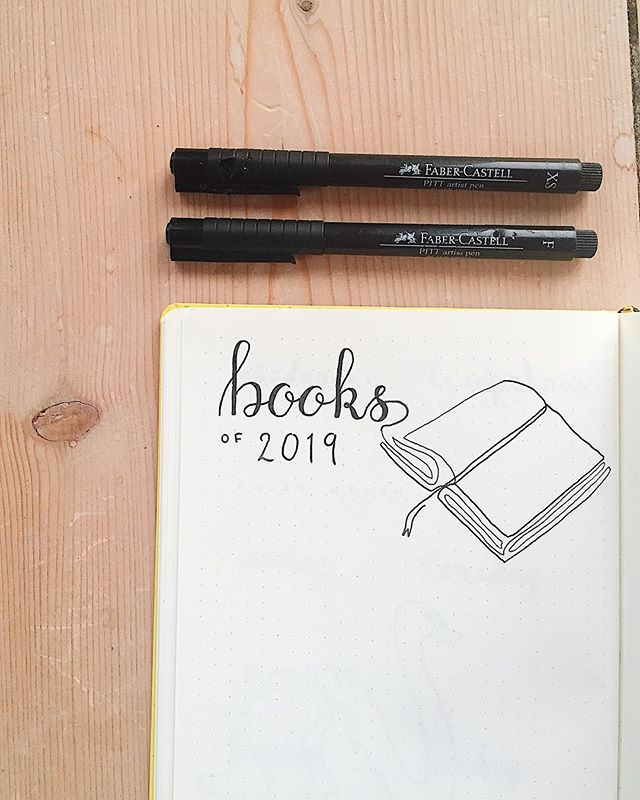 FABER-CASTELL
PITT artist pen
XS
FABER-CASTELL
PITT artist pen
F
books
OF 2019